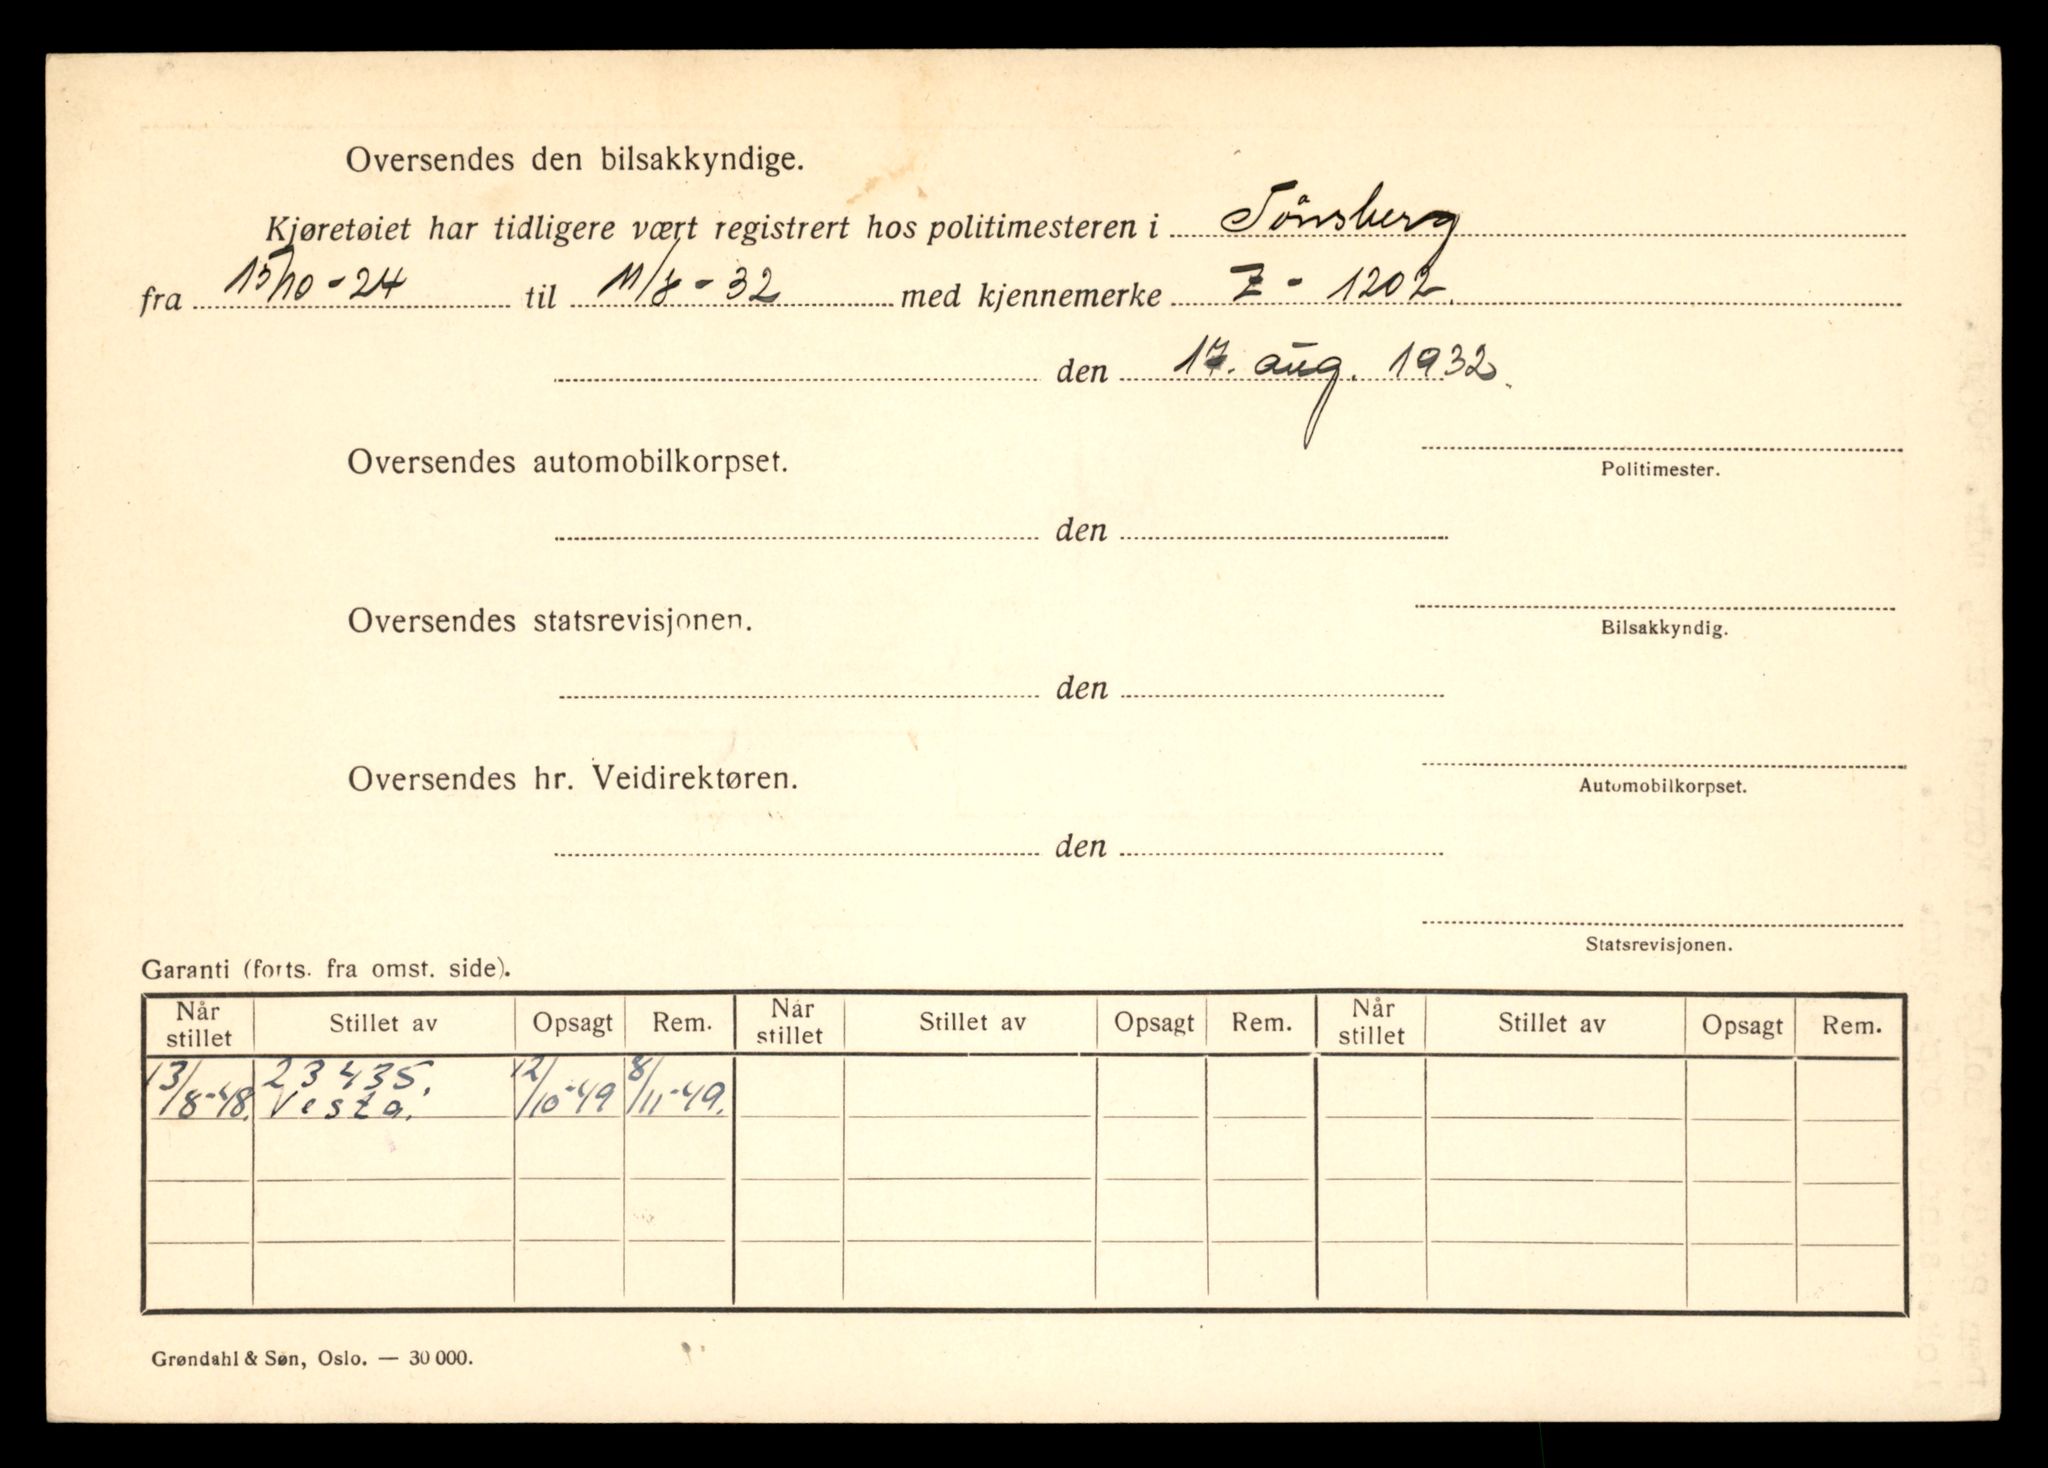 Oversendes den bilsakkyndige.
Kjøretøiet har tidligere vært registrert hos politimesteren i Tönsberg
fra 15/10-24 til 11/8-32 med kjennemerke Z - 1202.
den 17. aug. 1932.
Oversendes automobilkorpset.
Politimester.
den
Oversendes statsrevisjonen.
Bilsakkyndig.
den
Oversendes hr. Veidirektøren.
Automobilkorpset.
den
Statsrevisjonen.
Garanti (forts. fra omst. side).
Når stillet Stillet av Opsagt Rem. Når stillet Stillet av Opsagt Rem. Når stillet Stillet av Opsagt Rem.
13/8-48. 23435. Vesta. 12/10-49 8/11-49.
Grøndahl & Søn, Oslo. — 30 000.